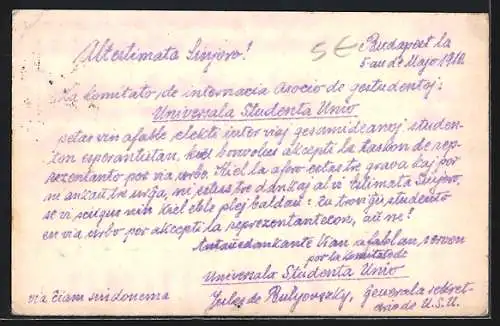 Altestimata Sinjoro!
5€
Budapest la
5-an de Majo 1910
La komitato de internacia Asocio de gestudentoj:
Universala Studenta Unio
petas vin afable elekti inter viaj gesamideanoj studen-
ton esperantistan, kiel akcepti la taskon de rep-
rezentanto por via urbo. Ĉiel la afero estas tre grava kaj por
ni ankaŭ tre urĝa, ni estus tre dankaj al vi Estimata Sinjoro,
se vi sciigus nin kiel eble plej baldaŭ: ĉu troviĝis studento
en via urbo por akcepti la reprezentantecon, aŭ ne!
Antaŭedankante vian afablan servon
por la komitato de
Universala Studenta Unio
via ĉiam sindonema
Jules de generala sekret-
ario de U.S.U.